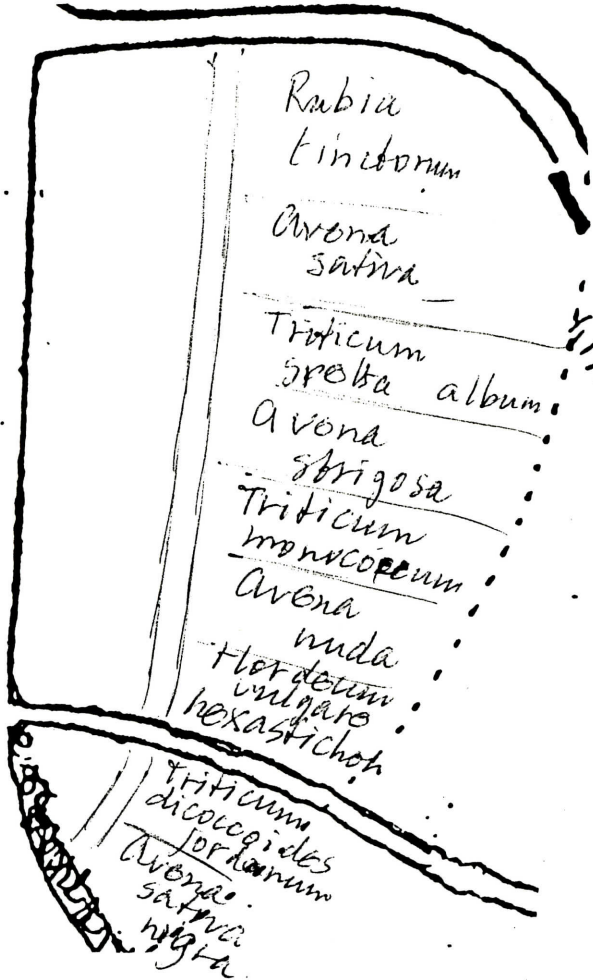 Rubia
tinctorum
Avena
sativa
Triticum
Spelta album
Avena
strigosa
Triticum
monococcum
Avena
nuda
Hordeum
vulgare
hexastichon
Triticum
dicoccoides
Jordanum
Avena
sativa
nigra